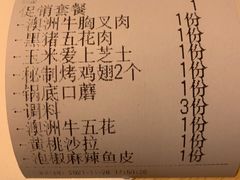 促销套餐 1
-澳洲牛胸叉肉 1份
-黑猪五花肉 1份
-玉米爱上芝士 1份
-秘制烤鸡翅2个 1份
-锅底口蘑 1份
-调料 3份
-澳洲牛五花 1份
-黄桃沙拉 1份
-泡椒麻辣鱼皮 1份